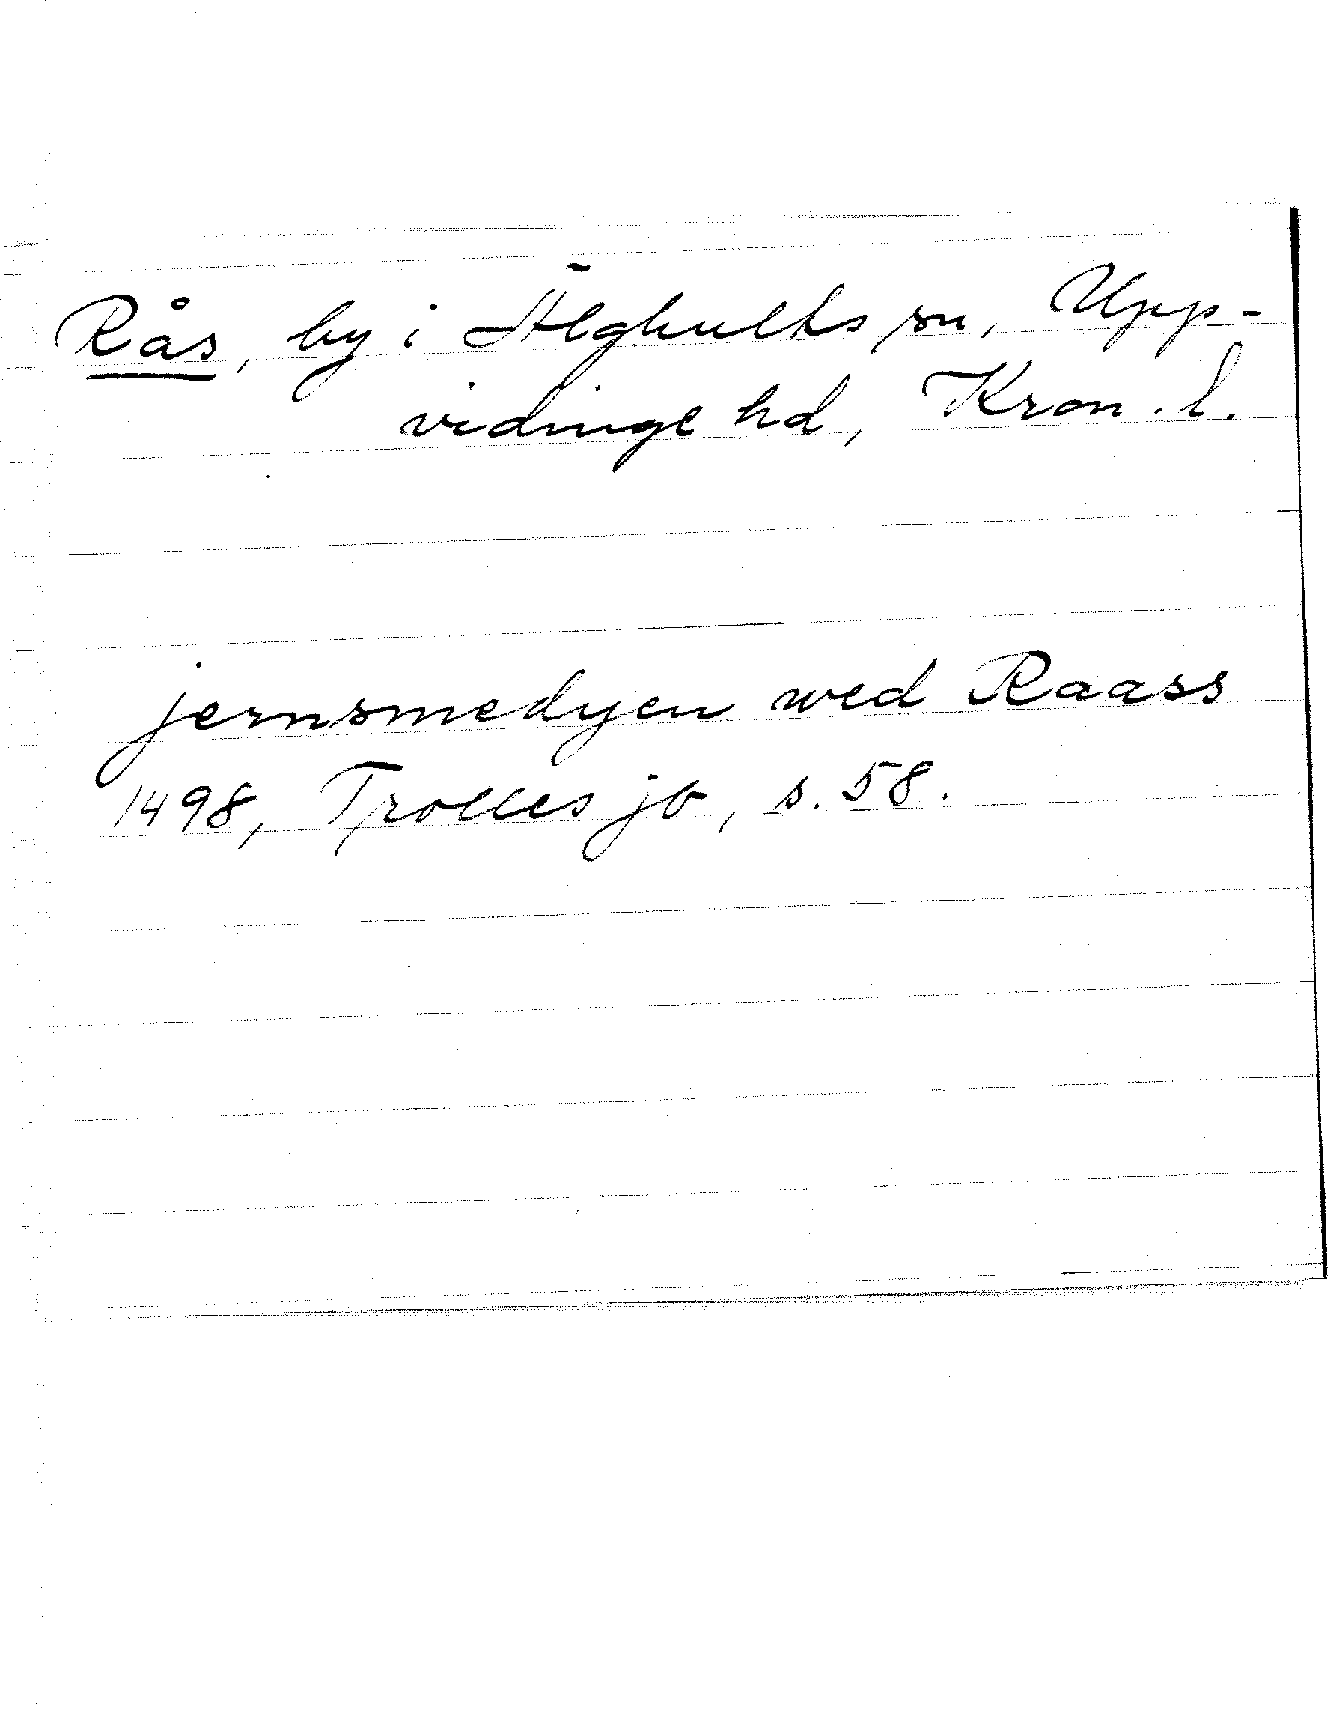 Rås, by i Älghults sn, Upp-
vidinge hd, Kron. l.
jernsmedyen wed Raass
1498, Trolles jb, s. 58.